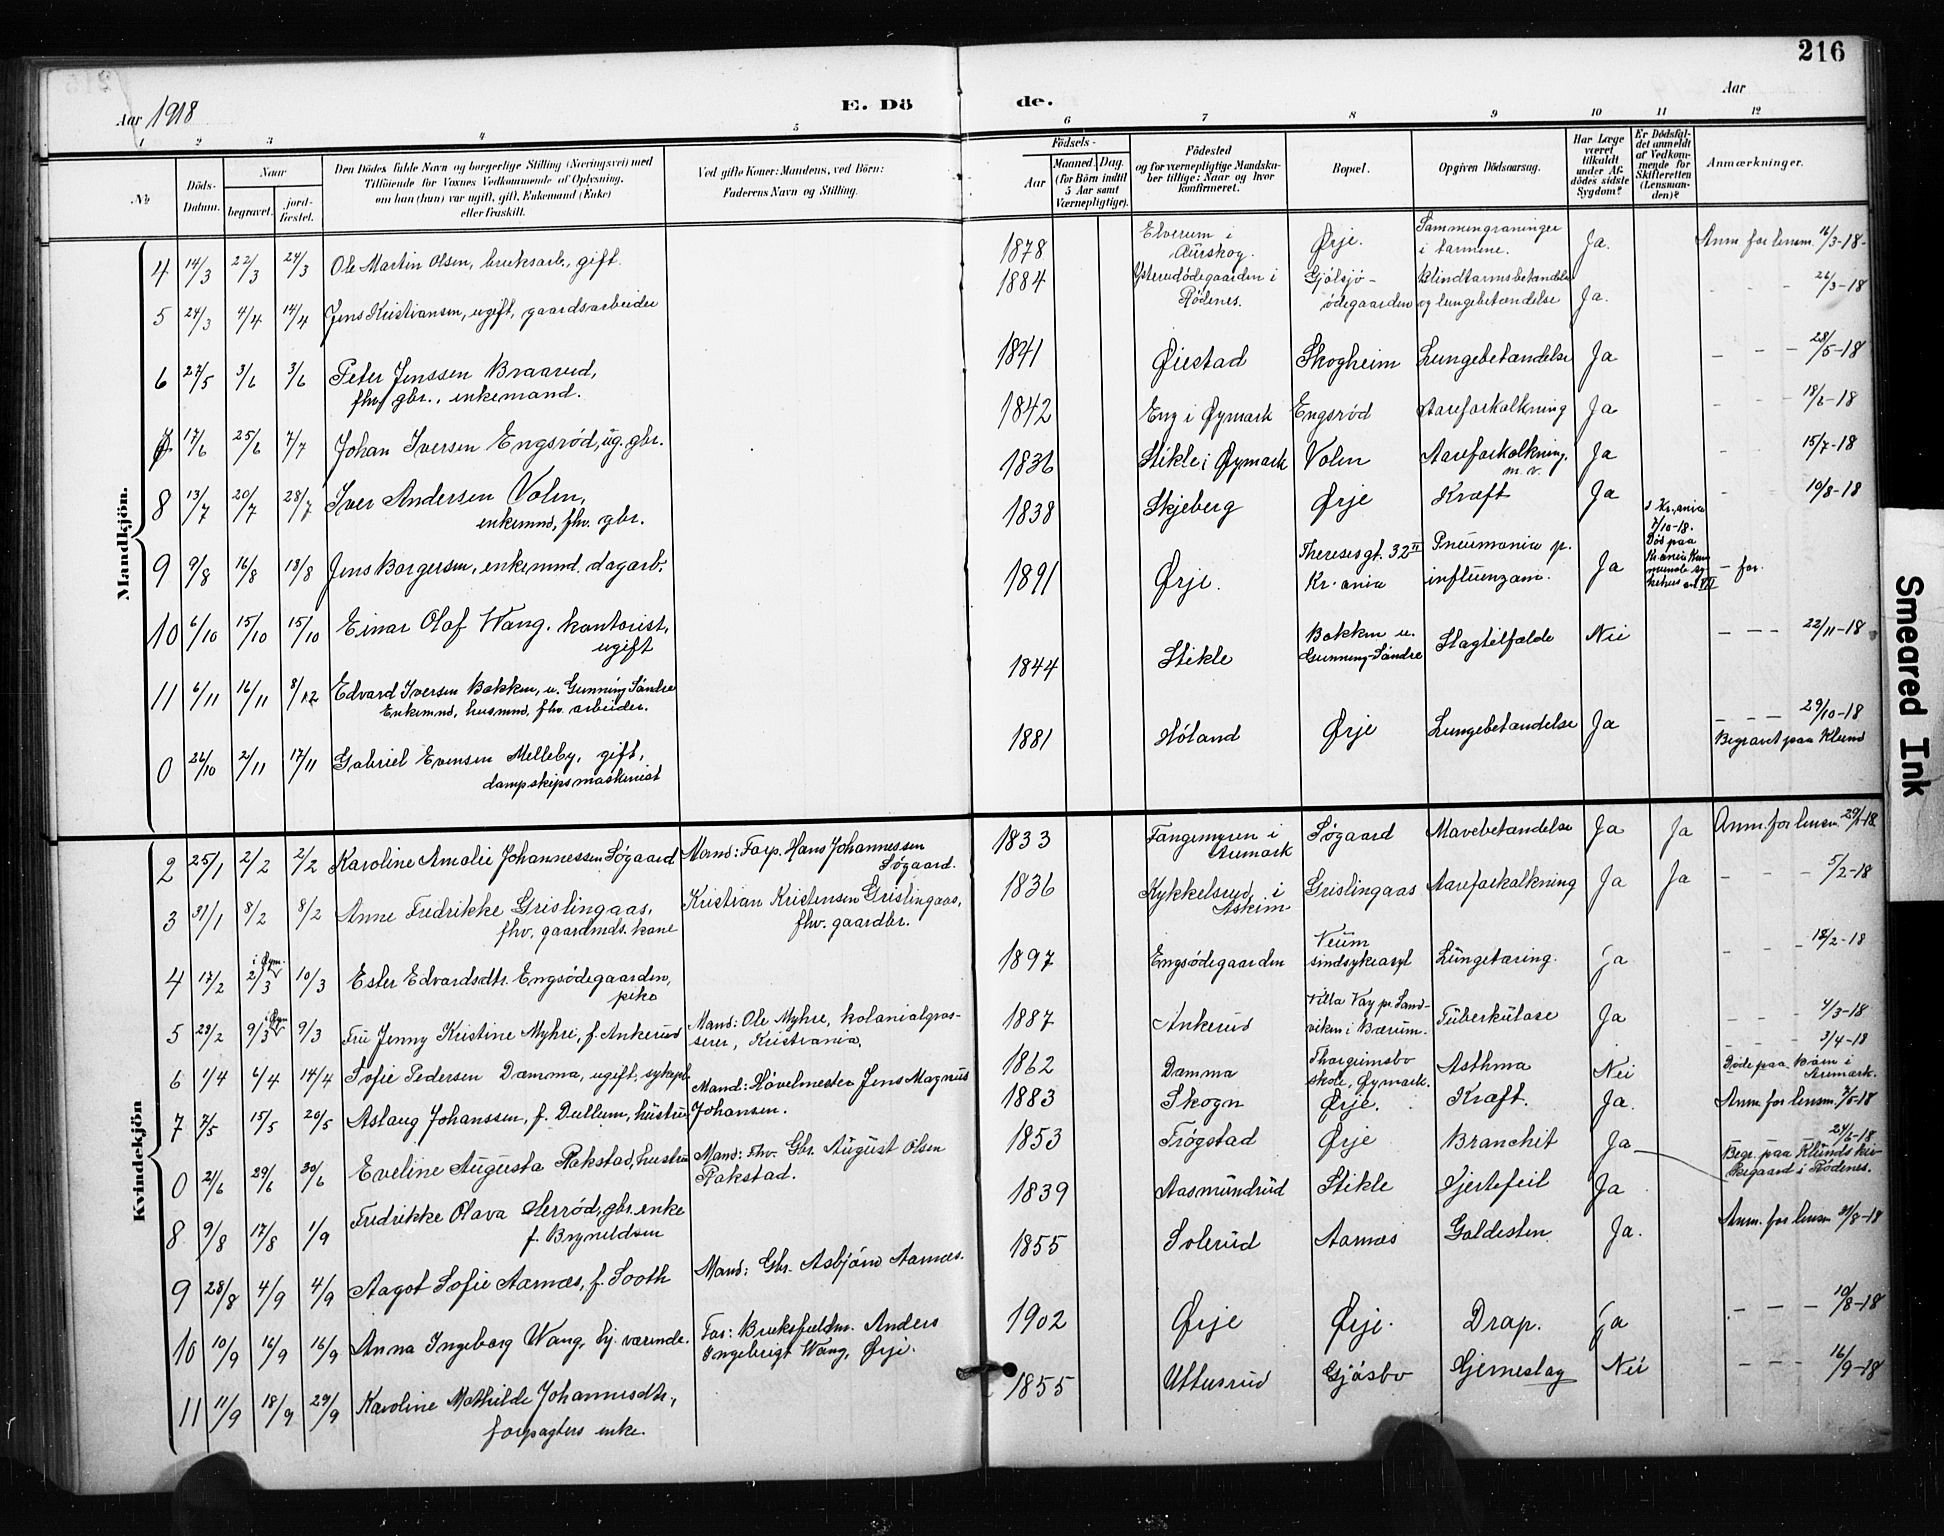 216
Aar 1918
E. Döde.
Aar
1 2 3 4 5 6 7 8 9 10 11 12
No
Döds-Datum.
Naar
begravet.
jord-fæstet.
Den Dödes fulde Navn og borgerlige Stilling (Næringsvei) med
Tilföiende for Voxnes Vedkommende af Oplysning,
om han (hun) var ugift, gift, Enkemand (Enke)
eller fraskilt.
Ved gifte Koner: Mandens, ved Börn:
Faderens Navn og Stilling.
Födsels-
Aar
Maaned. Dag.
(for Börn indtil
5 Aar samt
Værnepligtige).
Födested
og for værnepligtige Mandska-
ber tillige: Naar og hvor
konfirmeret.
Bopæl.
Opgiven Dödsaarsag.
Har Læge
været
tilkaldt
under Af-
dödes sidste
Sygdom?
Er Dödsfal-
det anmeldt
af Vedkom-
mende for
Skifteretten
(Lensman-
den)?
Anmærkninger.
Mandkjön.
4 14/3 22/3 24/3 Ole Martin Olsen, bruksarb., gift. 1878 Elverum i Aurskog. Ørje. Sammengroninger i tarmene. Ja. Anm. for lensm. 16/3-18-
5 24/3 4/4 14/4 Jens Kristiansen, ugift, gaardsarbeider 1884 Ysterudödegaarden i Rödenes. Gjölsjö-ödegaarden Blindtarmsbetændelse og lungebetændelse Ja. - - - 26/3-18
6 27/5 3/6 3/6 Peter Jenssen Braarud, fhv. gbr., enkemand. 1841 Øiestad Skogheim Lungebetændelse Ja - - - 28/5-18
7 17/6 25/6 7/7 Johan Iversen Engsröd, ug. gbr. 1842 Eng i Øymark Engsröd Aareforkalkning Ja - - - 18/6-18
8 13/7 20/7 28/7 Iver Andersen Volen, enkemnd, fhv. gbr. 1836 Stikle i Øymark Volen Aareforkalkning m. v. Ja - 15/7-18
9 9/8 16/8 18/8 Jens Borgersen, enkemnd. dagarb. 1838 Skjeberg Ørje Kræft Ja - 10/8-18
10 6/10 15/10 15/10 Einar Olaf Wang. kontorist, ugift 1891 Ørje. Theresesgt. 32 II Kr.ania Pneumonia p. influenzam. Ja i Kr.ania 7/10-18. Död paa Kr.ania Kommunale sykehus avd VII - for.
11 6/11 16/11 8/12 Edvard Iversen Bakken, u. Gunning Söndre Enkemnd, husmnd, fhv. arbeider. 1844 Stikle Bakken u. Gunning-Söndre Slagtilfælde Nei - - - 22/11-18
0 26/10 2/11 17/11 Gabriel Evensen Melleby, gift, dampskipsmaskinist 1881 Höland Ørje Lungebetændelse Ja - - - 29/10-18 Begravet paa Klund
Kvindekjön
2 25/1 2/2 2/2 Karoline Amalie Johannessen Sögaard Mand: Forp. Hans Johannessen Sögaard. 1833 Tangemyren i Aremark Sögaard Mavebetændelse Ja Ja Anm. for lensm. 29/1-18
3 31/1 8/2 8/2 Anne Fredrikke Grislingaas, fhv. gaardmds. kone Kristian Kristensen Grislingaas, fhv. gaardbr. 1836 Kykkelsrud i Askim Grislingaas Aareforkalkning Ja Ja - - - 5/2-18
4 17/2 i Øym. 2/3 10/3 Ester Edvardsdtr. Engsödegaarden, pike 1897 Engsödegaarden Neum sindsykeasyl Lungetæring. Ja - 18/2-18
5 28/2 9/3 i Øym 9/3 Fru Jenny Kristine Myhre, f. Ankerud Mand: Ole Myhre, kolonialgrosserer, Kristiania. 1887 Ankerud Villa Vay pr. Sandviken i Bærum. Tuberkulose Ja - - - 4/3-18
6 1/4 6/4 14/4 Sofie Pedersen Damma, ugift, sykepl. 1862 Damma Thorgeimsbo skole, Øymark. Asthma Nei - - - 3/4-18 Döde paa Kôm i Aremark.
7 7/5 15/5 20/5 Aslaug Johanssen, f. Dullum, hustru Mand: Hövelmester Jens Magnus Johansen. 1883 Skogn Ørje. Kræft. Ja. Anm. for lensm. 7/5-18
0 21/6 29/6 30/6 Eveline Augusta Rakstad, hustru Mand: Fhv. Gbr. August Olsen Rakstad. 1853 Trögstad Ørje Bronchit Ja - - 24/6-18 Begr. paa Klunds kirkegaard i Rödenes.
8 9/8 17/8 1/9 Fredrikke Olava Herröd, gbr. enke f. Brynildsen 1839 Aasmundrud Stikle Hjertefeil Ja Anm. for lensm. 31/8-18
9 28/8 4/9 4/9 Aagot Sofie Aarnæs, f. Sooth Mand: Gbr. Asbjörn Aarnæs. 1855 Solerud Aarnæs Galdesten Ja.
10 10/9 16/9 16/9 Anna Ingeborg Wang, hj. værende. Far: Bruksfuldm. Anders Ingebrigt Wang, Ørje. 1902 Ørje Ørje. Drap. Ja - - - 10/8-18
11 11/9 18/9 29/9 Karoline Mathilde Johannesdtr., forpagters enke. 1855 Uttusrud Gjösbo Hjerneslag Nei - - - 16/9-18
Smeared Ink